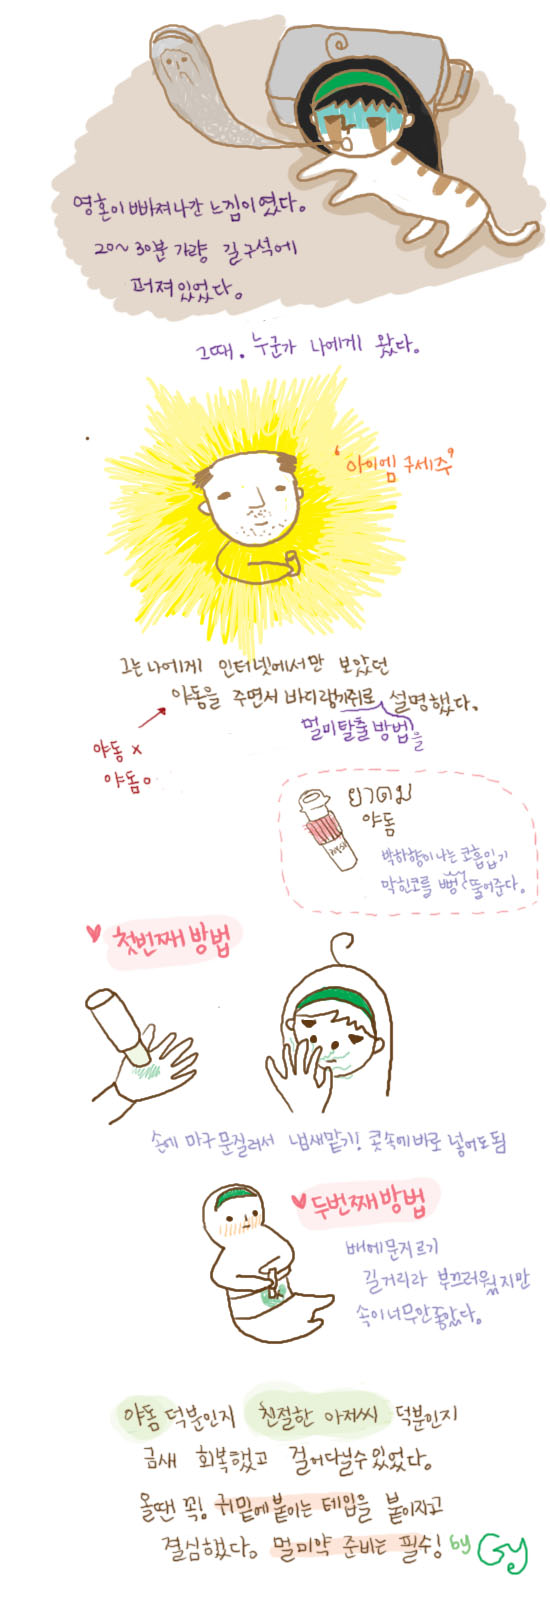 영혼이 빠져나간 느낌이였다.
20~30분 가량 길구석에
퍼져있었다.
그때. 누군가 나에게 왔다.
'아이엠 구세주'
그는 나에게 인터넷에서만 보았던
야동을 주면서 바디랭기쥐로 설명했다.
멀미탈출방법을
야동 x
야돔 o
ยาดม
야돔
박하향이 나는 코흡입기
막힌코를 뻥 뚫어준다.
♥ 첫번째 방법
손에 마구 문질러서 냄새맡기! 콧속에 바로 넣어도됨
♥ 두번째 방법
배에 문지르기
길거리라 부끄러웠지만
속이 너무 안좋았다.
야돔 덕분인지 친절한 아저씨 덕분인지
금새 회복했고 걸어다닐수 있었다.
올땐 꼭! 귀밑에 붙이는 테입을 붙이자고
결심했다. 멀미약 준비는 필수! by Gy